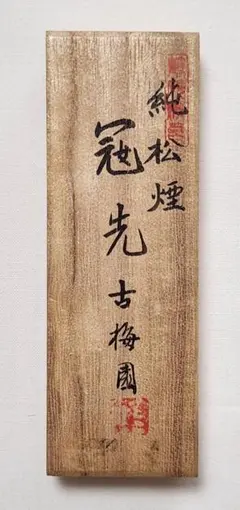 純松煙
冠先
古梅園